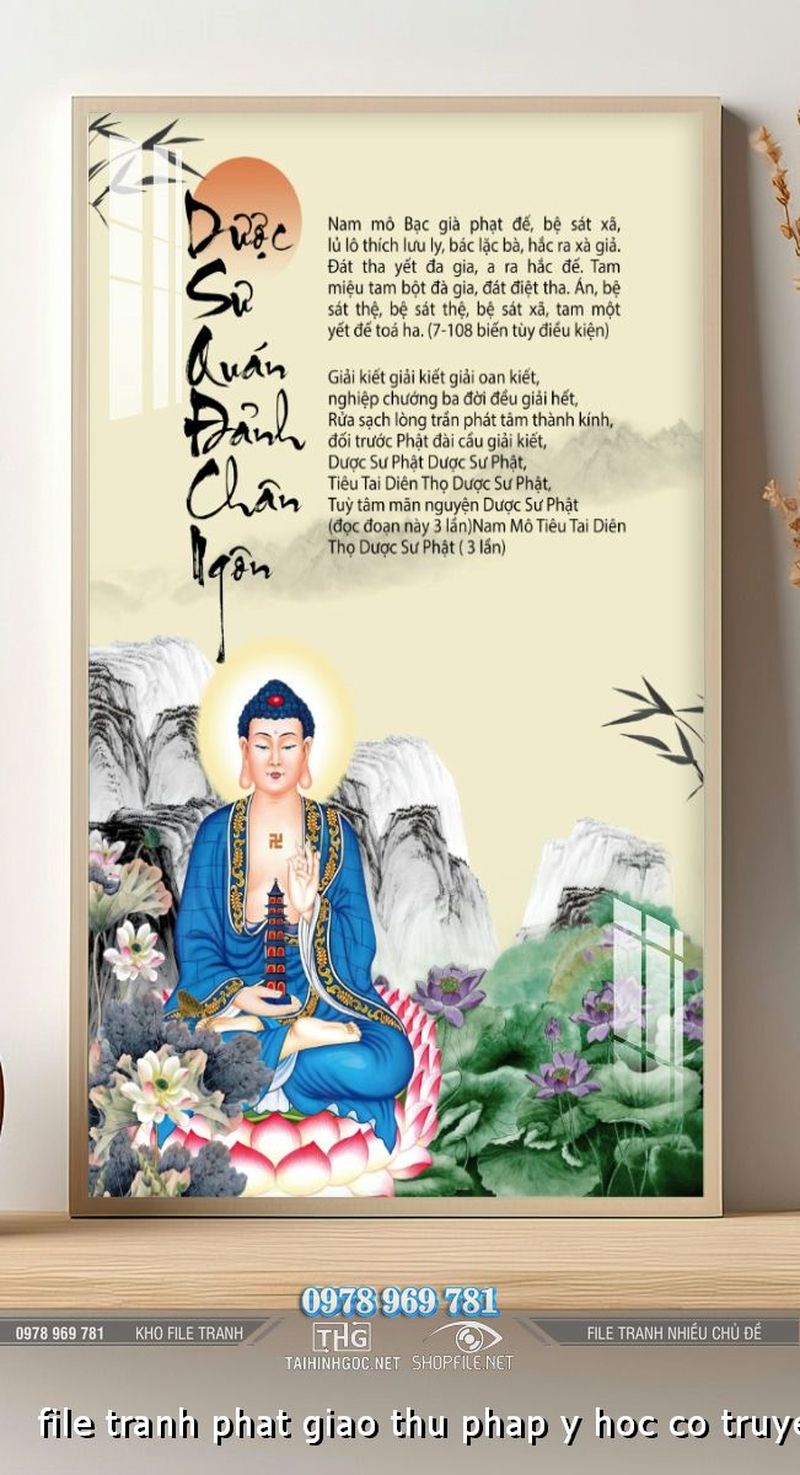 Dược
Sư
Quán
Đảnh
Chân
Ngôn
Nam mô Bạc già phạt đế, bệ sát xã,
lủ lô thích lưu ly, bác lặc bà, hắc ra xà giả.
Đát tha yết đa gia, a ra hắc đế. Tam
miệu tam bột đà gia, đát điệt tha. Án, bệ
sát thệ, bệ sát thệ, bệ sát xã, tam một
yết đế toá ha. (7-108 biến tùy điều kiện)
Giải kiết giải kiết giải oan kiết,
nghiệp chướng ba đời đều giải hết,
Rửa sạch lòng trần phát tâm thành kính,
đối trước Phật đài cầu giải kiết,
Dược Sư Phật Dược Sư Phật,
Tiêu Tai Diên Thọ Dược Sư Phật,
Tuỳ tâm mãn nguyện Dược Sư Phật
(đọc đoạn này 3 lần)Nam Mô Tiêu Tai Diên
Thọ Dược Sư Phật ( 3 lần)
卍
0978 969 781
0978 969 781 KHO FILE TRANH THG FILE TRANH NHIỀU CHỦ ĐỀ
TAIHINHGOC.NET SHOPFILE.NET
file tranh phat giao thu phap y hoc co truye